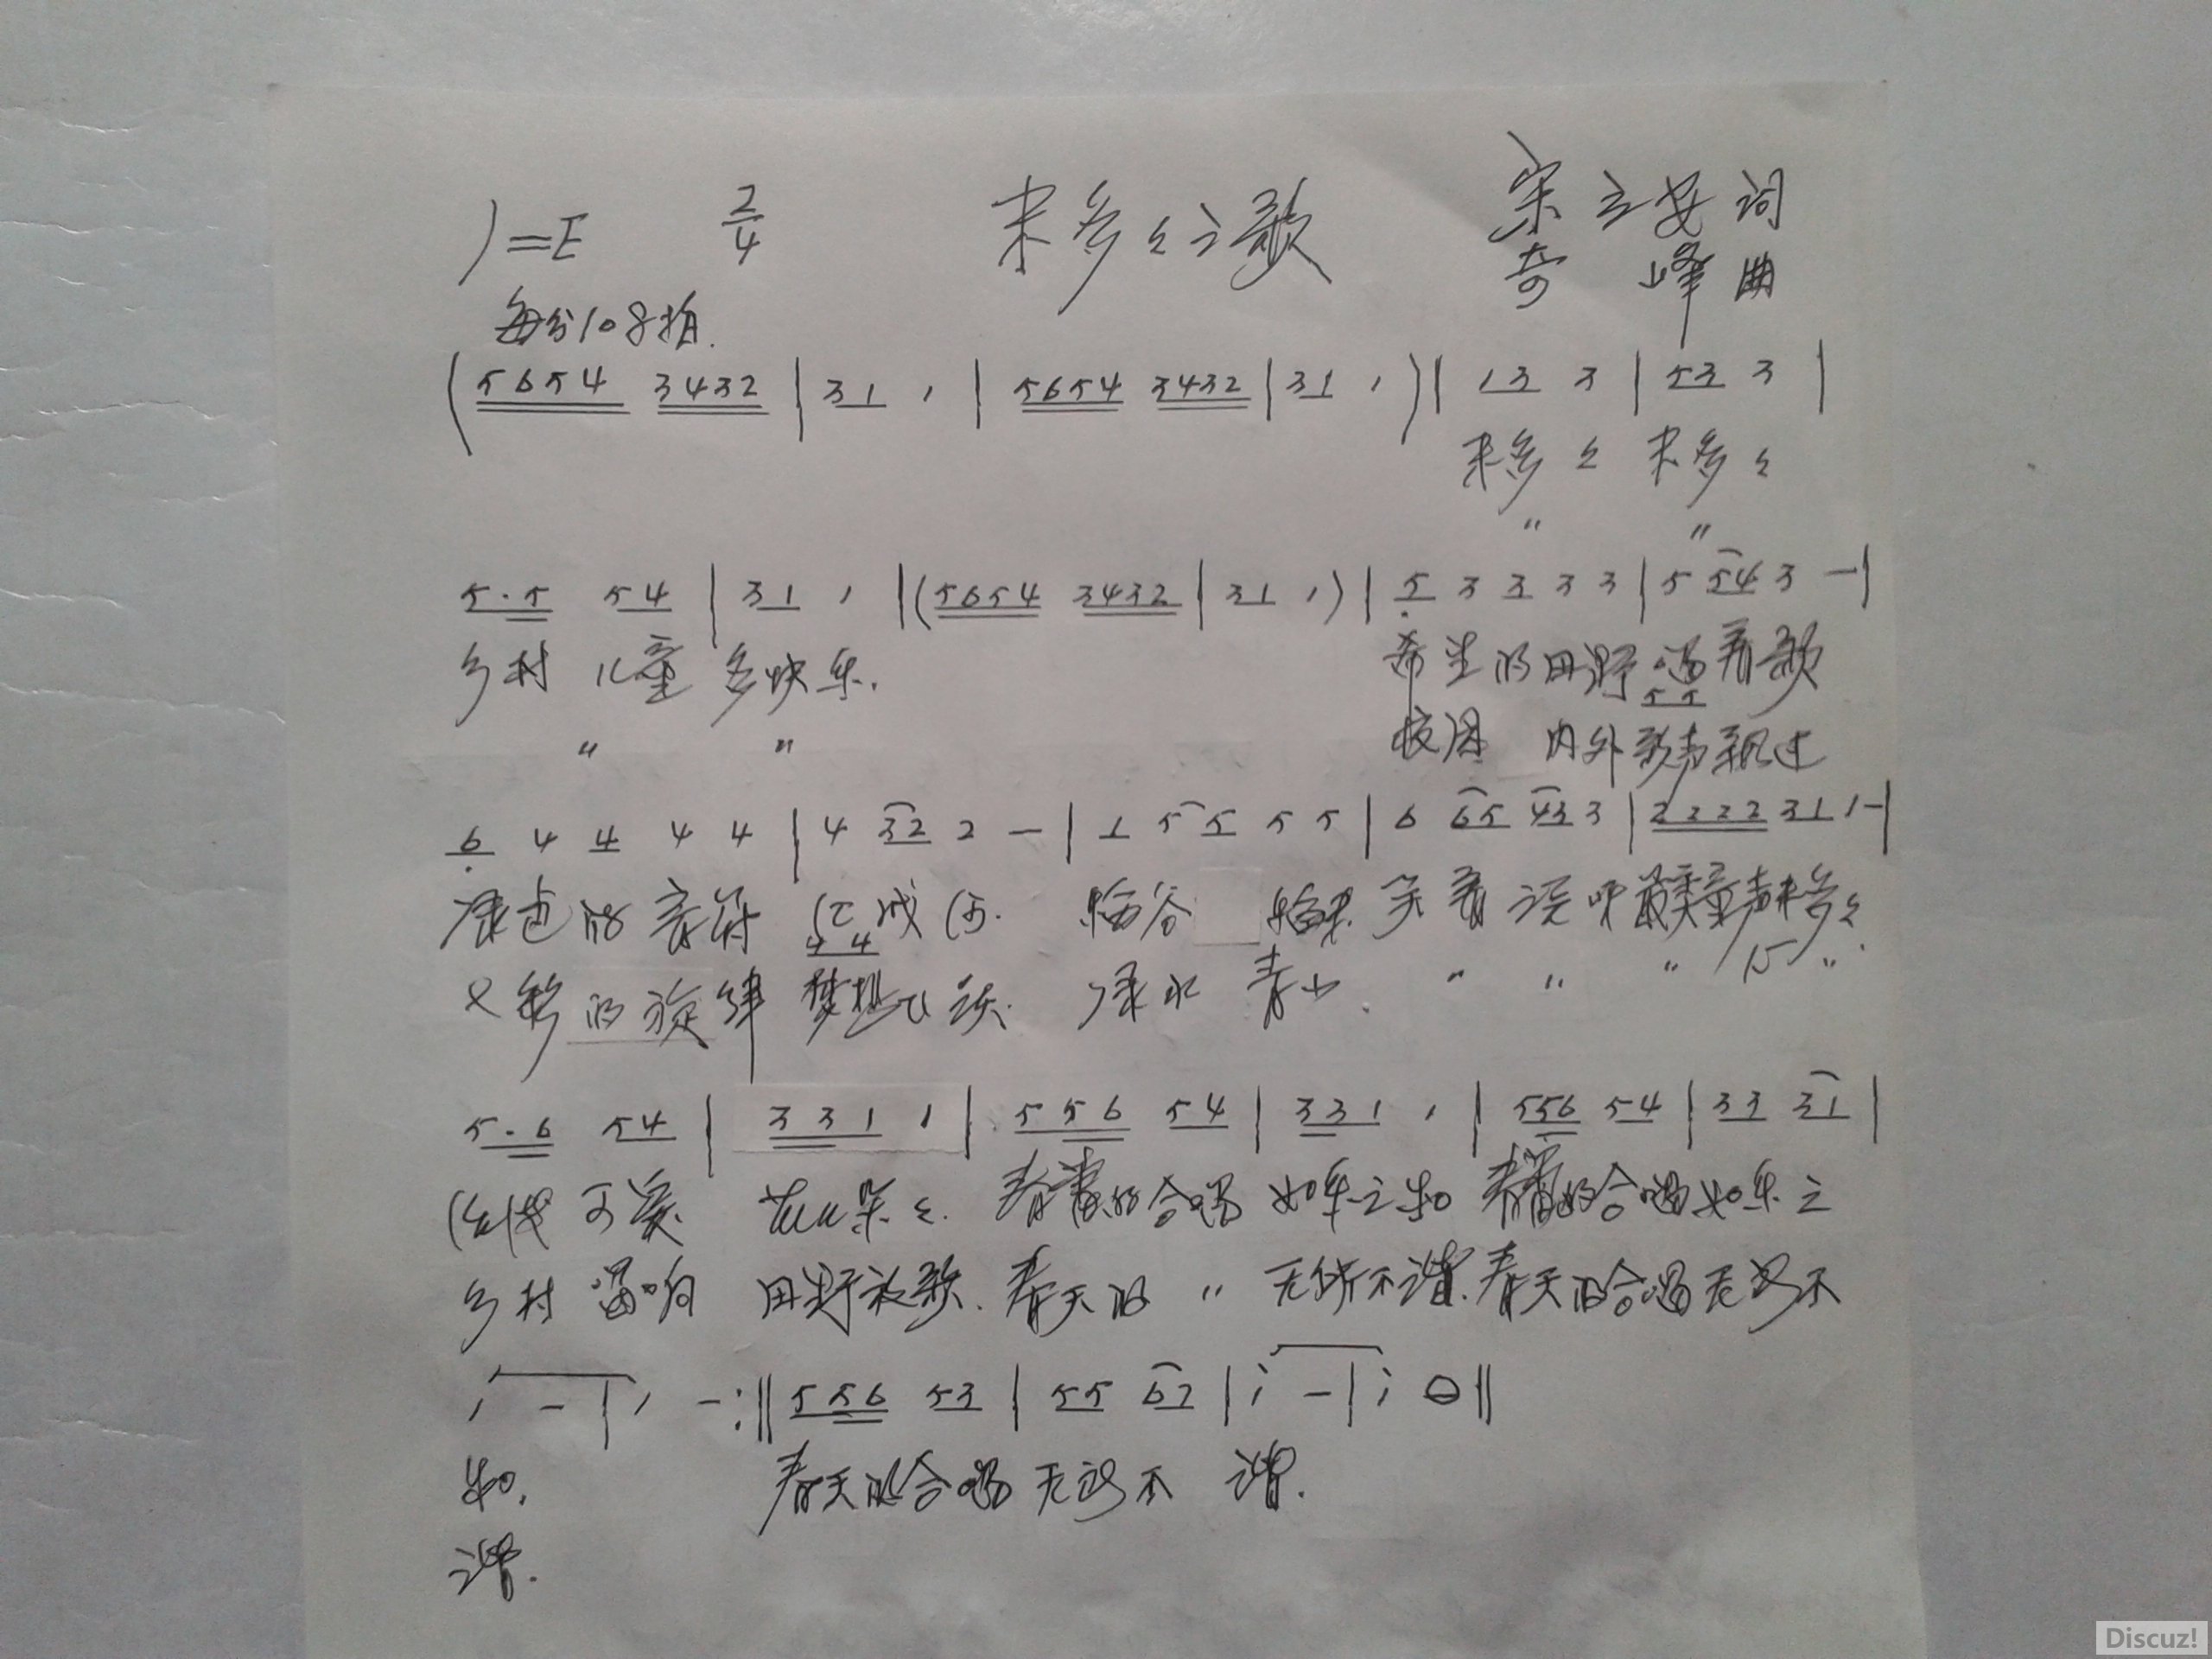 1=E 2/4 朵多多之歌 宋立安 词
奇峰 曲
每分108拍.
(5654 3432 | 31 1 | 5654 3432 | 31 1 ) | 13 3 | 53 3 |
朵多多 朵多多
" "
5.5 54 | 31 1 | (5654 3432 | 31 1) | 5 3 3 3 3 | 5 54 3 - |
乡村 儿童 多快乐. 希望的田野唱着歌
5 5
" " 校园 内外歌声飘过
6 4 4 4 4 | 4 32 2 - | 1 5 5 5 5 | 6 65 43 3 | 2222 31 1 - |
绿色的音符汇成河. 稻谷 笑着 童声朵多多.
4 4
的旋律 梦想飞跃. 绿水 青山. " " " "
5.6 54 | 331 1 | 556 54 | 331 1 | 556 54 | 33 31 |
红伐可爱 花儿朵朵. 青春的合唱 如乐之和 青春的合唱如乐之
乡村唱响 田野放歌. 春天的 " 无所不谐. 春天的合唱无所不
1 - | 1 - :‖ 556 53 | 55 67 | i - | i 0 ‖
和. 春天的合唱无所不 谐.
谐.
Discuz!